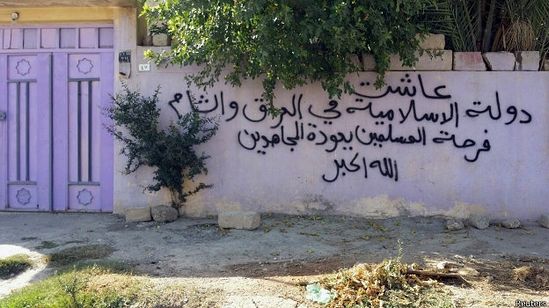 عاشت
دولة الاسلامية في العراق والشام
فرحة المسلمين بعودة المجاهدين
الله اكبر
Reuters